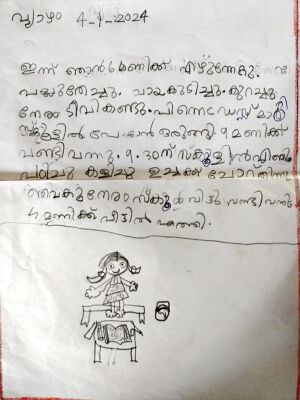 വ്യാഴം 4-1-2024
ഇന്ന് ഞാൻ 6 മണിക്ക് എഴുന്നേറ്റു.
പല്ലുതേച്ചു. ചായകുടിച്ചു. കുറച്ചു
നേരം ടീവികണ്ടു. പിന്നെ ഡ്രസ്സ് മാറി
സ്കൂളിൽ പോകാൻ ഒരുങ്ങി. 9 മണിക്ക്
വണ്ടി വന്നു. 9.30ന് സ്കൂളിൽ എത്തി
പഠിച്ചു കളിച്ചു ഉച്ചക്ക് ചോറു തിന്നു
വൈകുന്നേരം സ്കൂൾ വിട്ടു വണ്ടി വന്നു
4 മണിക്ക് വീട്ടിൽ എത്തി.